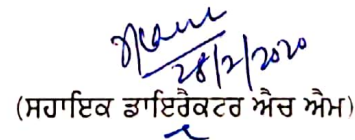 28/2/2020
(ਸਹਾਇਕ ਡਾਇਰੈਕਟਰ ਐਚ ਐਮ)